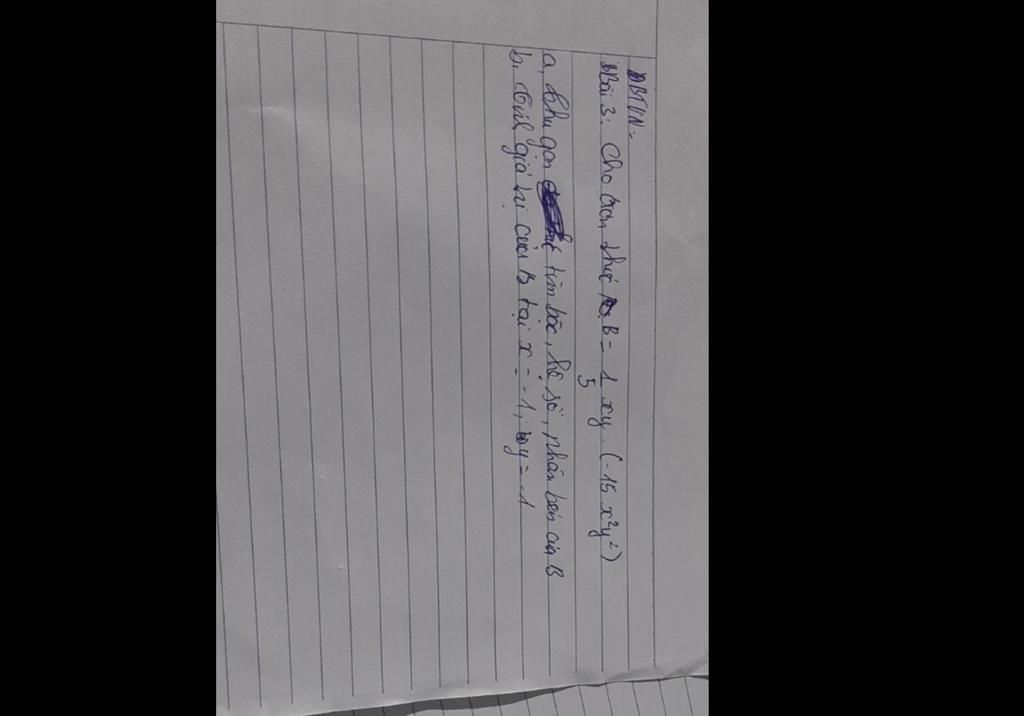 BTVN:
Bài 3: Cho đơn thức B = 1/5 xy . (-15 x²y²)
a, thu gọn tìm bậc, hệ số, phần biến của B
b, Tính giá trị của B tại x = -1, y = -1